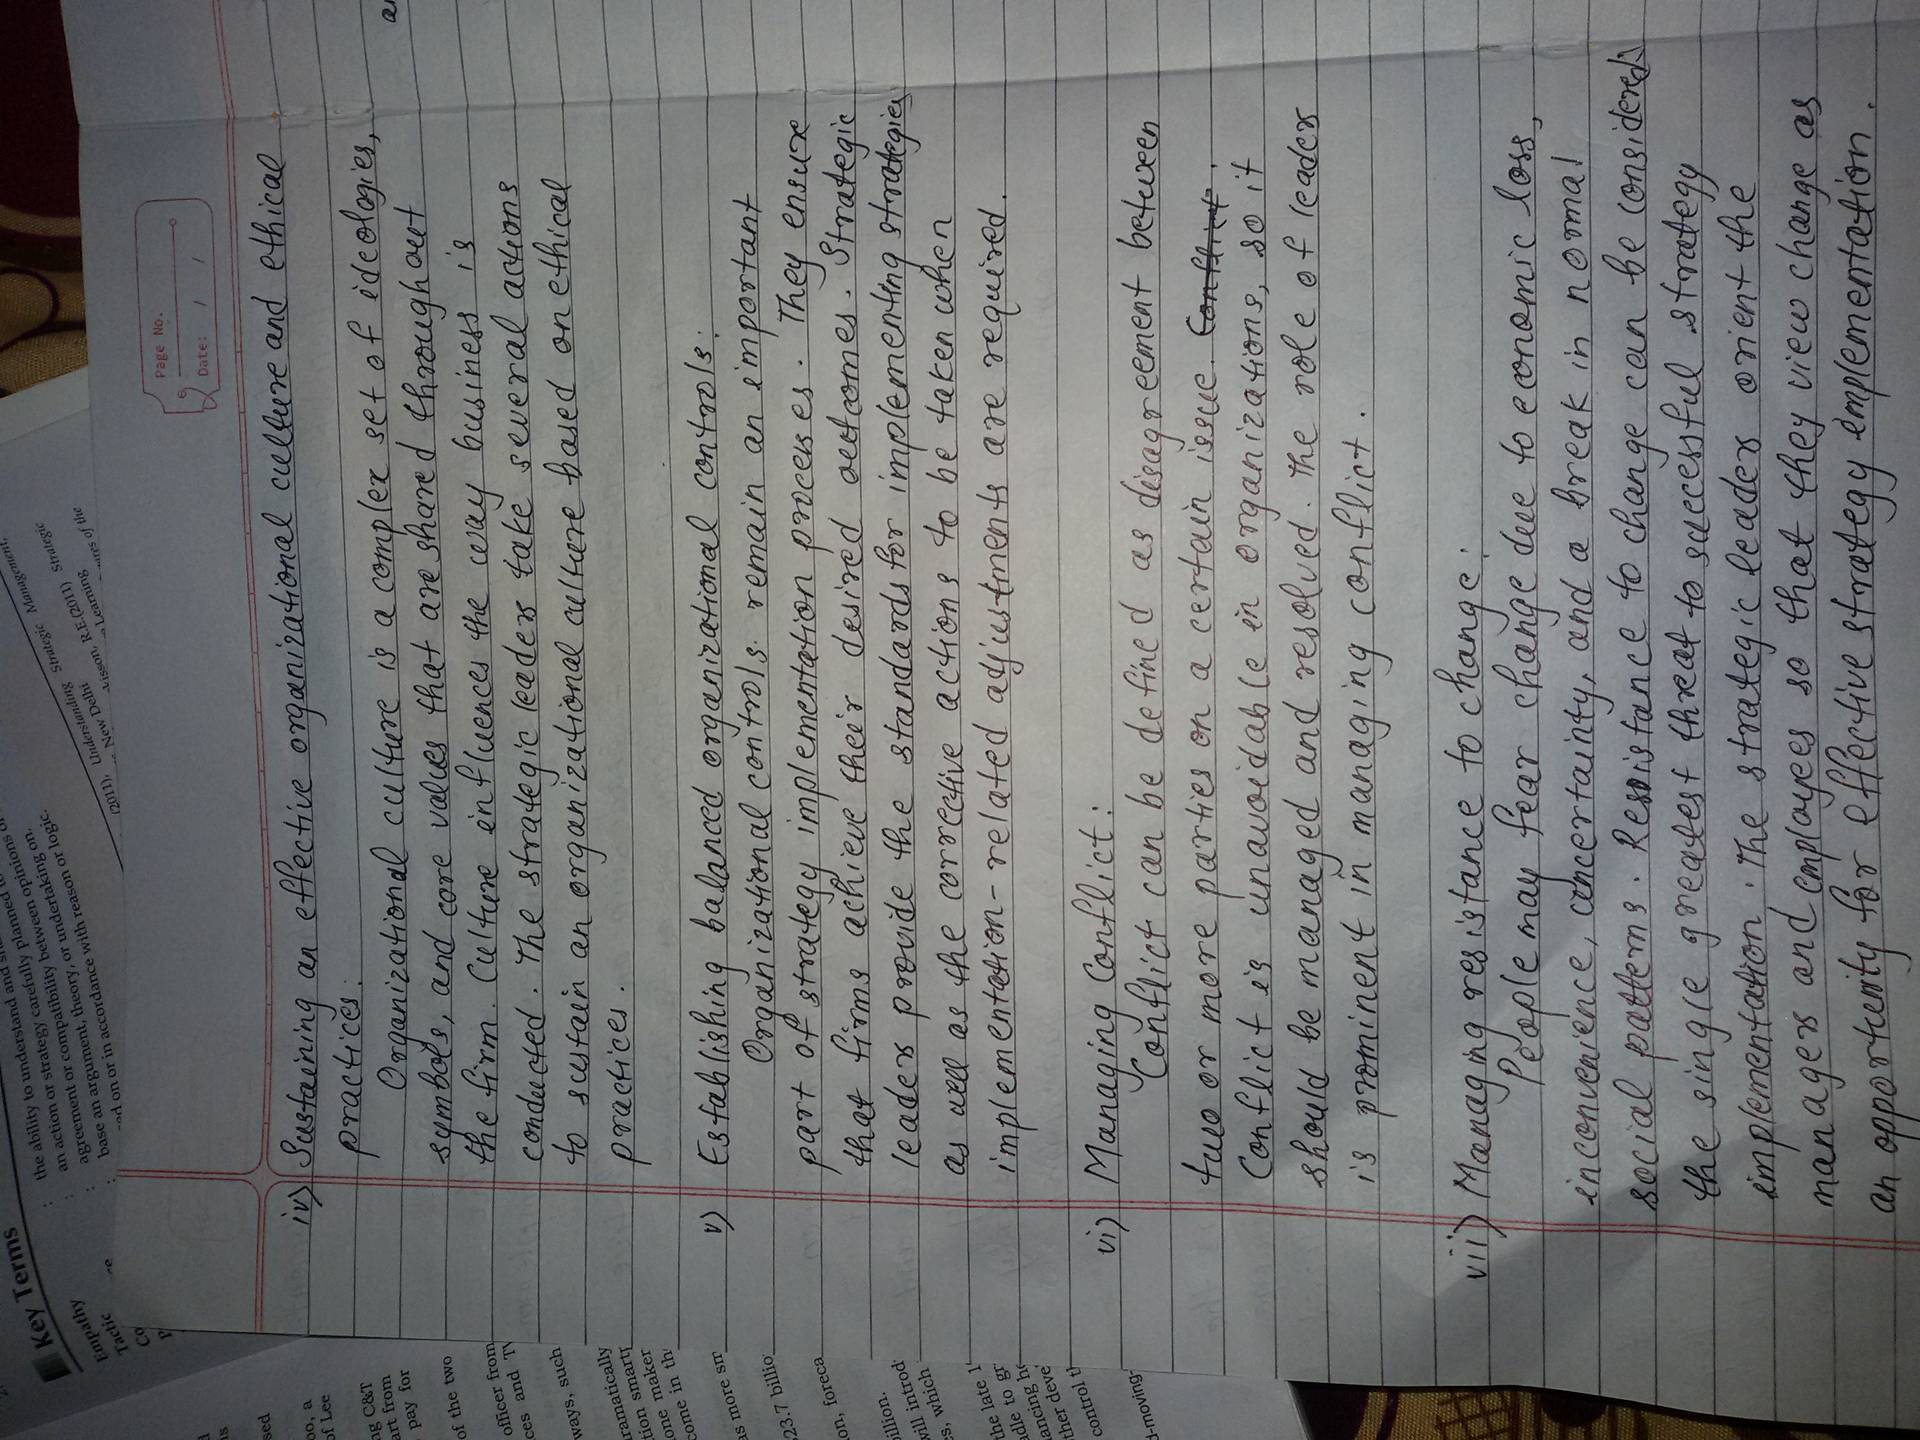 Key Terms
Empathy
Tactic
Co
P
: the ability to understand and
: an action or strategy carefully planned
: agreement or compatibility between opinions
base an argument, theory, or undertaking on.
on or in accordance with reason or logic.
(2011), Understanding Strategic Management,
New Delhi
R.E.(2011) Strategic
Learning
of the
is
sed
oo, a
of Lee
ng C&T
art from
pay for
of the two
officer from
ces and TV
ways, such
ramatically
tion smart
one maker
come in th
as more sm
23.7 billio
on, foreca
billion.
will introd
es, which
the late 1
adle to gr
ancing he
ther deve
control t
d-moving-
Page No.
Date: / /
iv) Sustaining an effective organizational culture and ethical
practices:
Organizational culture is a complex set of ideologies,
symbols, and core values that are shared throughout
the firm. Culture influences the way business is
conducted. The strategic leaders take several actions
to sustain an organizational culture based on ethical
practices.
v) Establishing balanced organizational controls:
Organizational controls remain an important
part of strategy implementation processes. They ensure
that firms achieve their desired outcomes. Strategic
leaders provide the standards for implementing strategies
as well as the corrective actions to be taken when
implementation-related adjustments are required.
vi) Managing Conflict:
Conflict can be defined as disagreement between
two or more parties on a certain issue. Conflict.
Conflict is unavoidable in organizations, so it
should be managed and resolved. The role of leaders
is prominent in managing conflict.
vii) Managing resistance to change:
People may fear change due to economic loss,
inconvenience, uncertainty, and a break in normal
social patterns. Resistance to change can be considered
the single greatest threat to successful strategy
implementation. The strategic leaders orient the
managers and employees so that they view change as
an opportunity for effective strategy implementation.